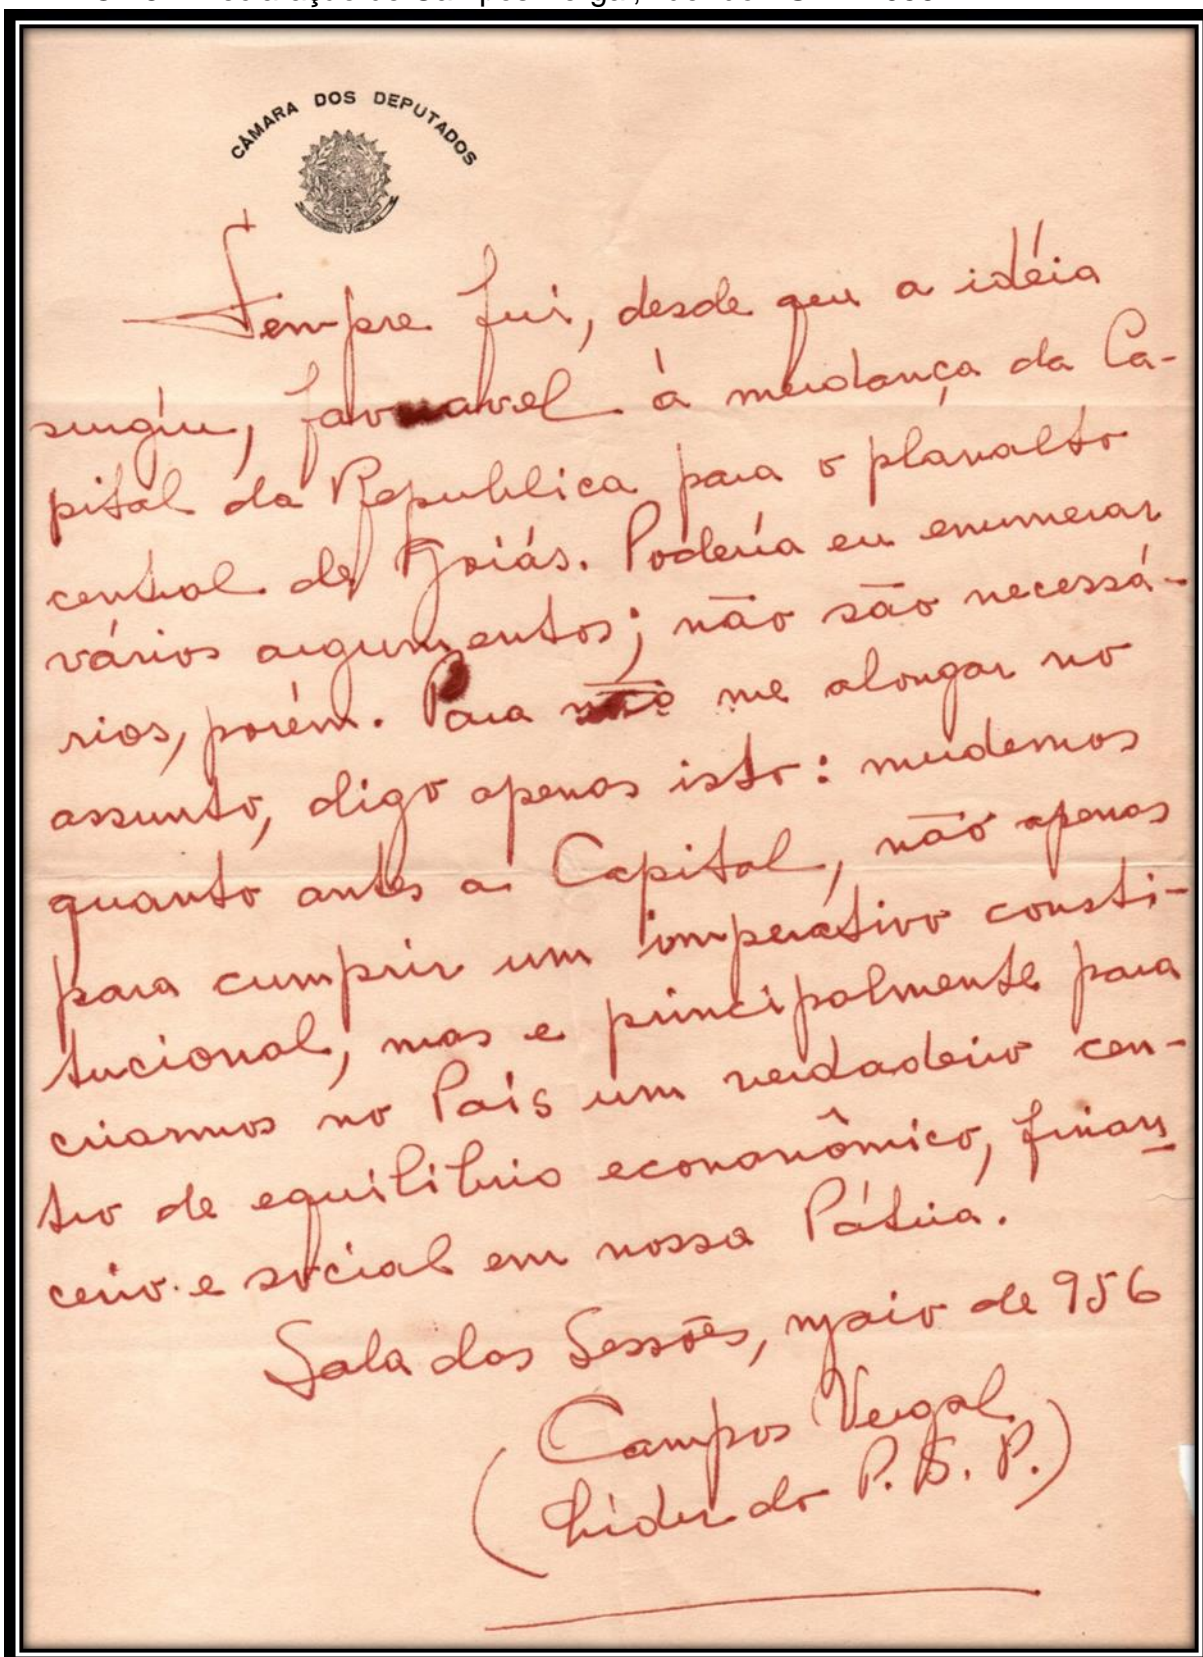 CÂMARA DOS DEPUTADOS
Sempre fui, desde qeu a idéia
surgiu, favoravel à mudança da Ca-
pital da Republica para o planalto
central de Goiás. Poderia eu enumerar
vários argumentos; não são necessá-
rios, porém. Para não me alongar no
assunto, digo apenas isto: mudemos
quanto antes a Capital, não apenas
para cumprir um imperativo consti-
tucional, mas e principalmente para
criarmos no País um verdadeiro cen-
tro de equilibrio econonômico, finan-
ceiro e social em nossa Pátria.
Sala das Sessões, maio de 956
Campos Vergal
(Lider do P.S.P.)